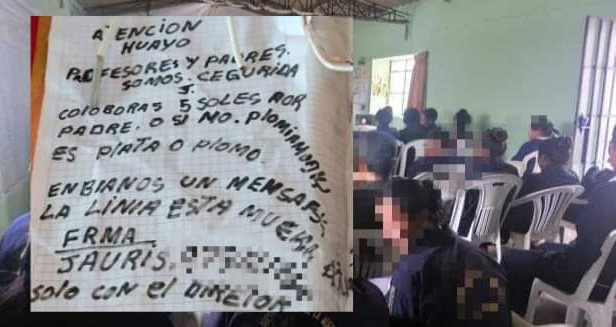 A ENCION
HUAYO
PROFESORES Y PADRES.
SOMOS. CEGURIDA
J.
COLOBORAS 5 SOLES POR
PADRE. O SI NO. PlOMIAMOS
ES PlATA O PlOMO.
ENBIANOS UN MENSAJE
LA LINIA ESTA MUERA
FRMA
JAURIS.
SOlO CON El DIRETOR